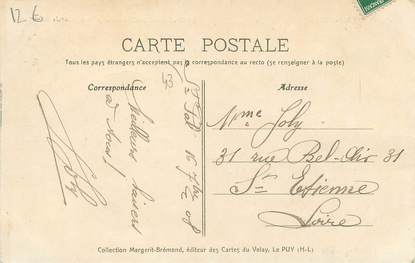 12 €
CARTE POSTALE
Tous les pays étrangers n'acceptent pas la correspondance au recto (se renseigner à la poste)
Correspondance
43
Adresse
Meilleurs baisers
à tous!
Joly
16 7bre 08
Mme Joly
31 rue Bel-Air 31
St Etienne
Loire
Collection Margerit-Brémond, éditeur des Cartes du Velay, Le PUY (H-L)